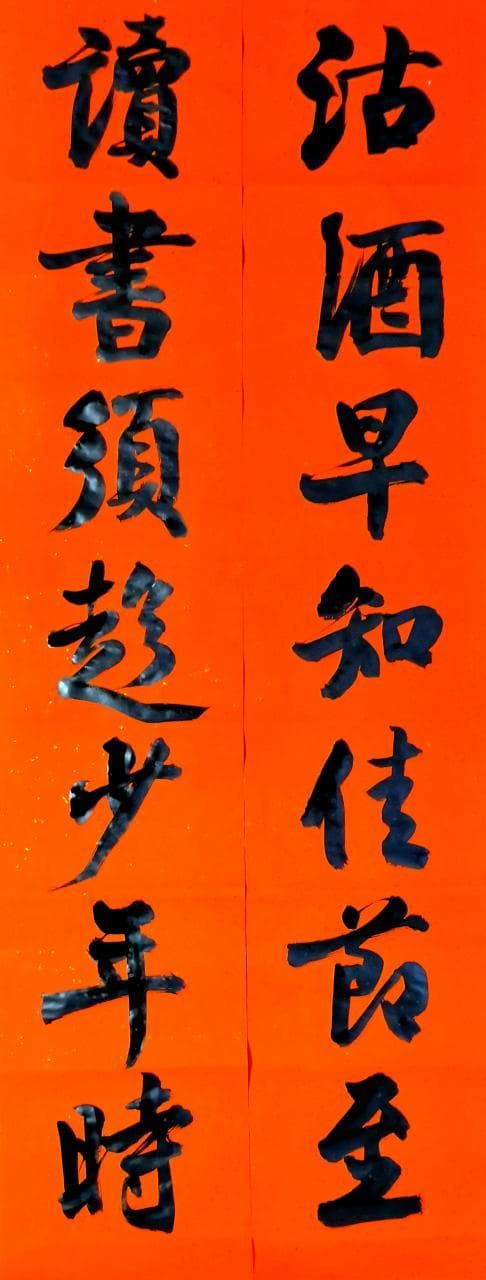 沽酒早知佳節至
讀書須趁少年時